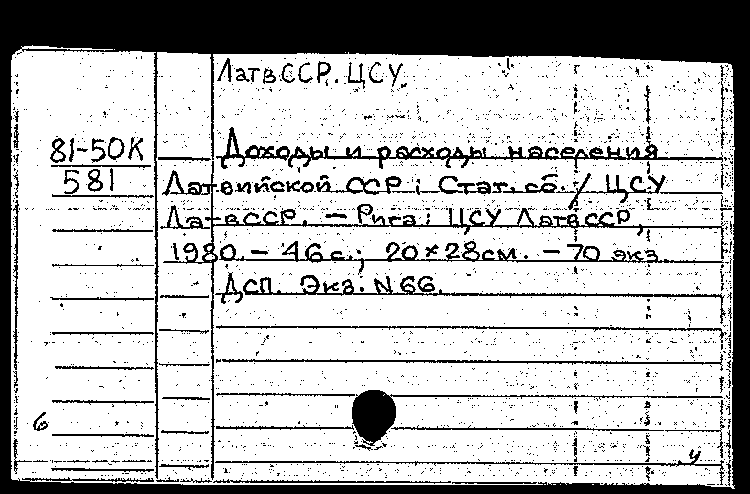 ЛатвССР. ЦСУ.
81-50К Доходы и расходы населения
581 Латвийской ССР: Стат. сб. / ЦСУ
ЛатвССР. — Рига: ЦСУ ЛатвССР,
1980. — 46 с.; 20×28см. — 70 экз.
ДСП. Экз. N 66.
6
ч